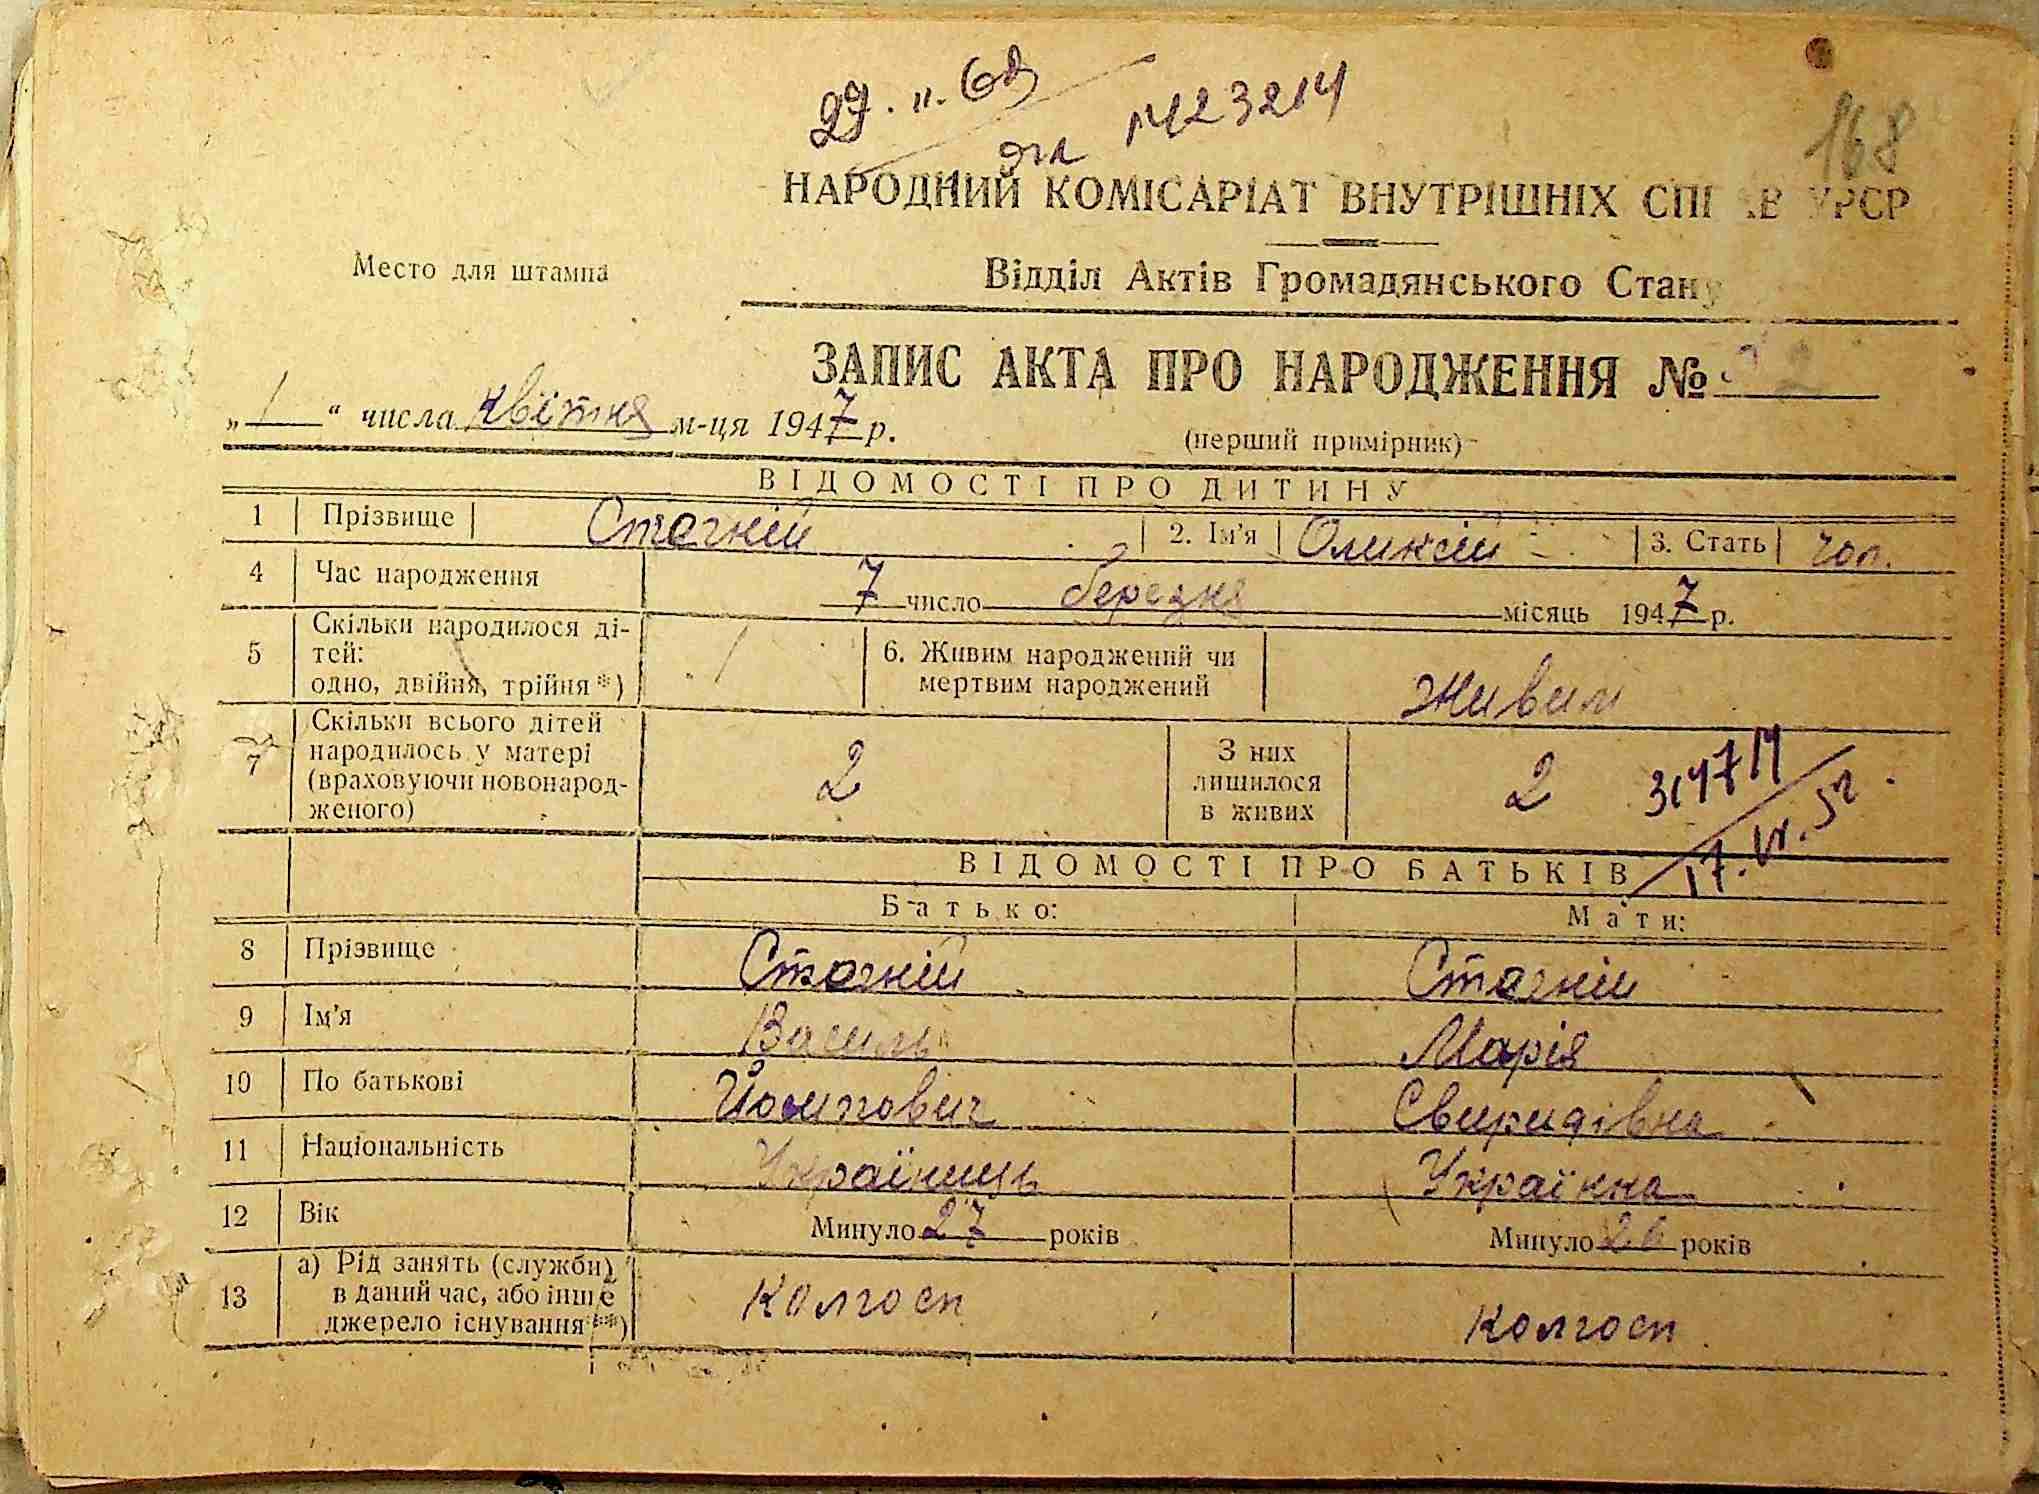 29. II. 68
168
НАРОДНИЙ КОМІСАРІАТ ВНУТРІШНІХ СПРАВ УРСР
Место для штампа
Відділ Актів Громадянського Стану
ЗАПИС АКТА ПРО НАРОДЖЕННЯ №
„ 1 “ числа квітня м-ця 1947 р.
(перший примірник)
ВІДОМОСТІ ПРО ДИТИНУ
1 Прізвище Стогній 2. Ім'я Оликсій 3. Стать чол.
4 Час народження 7 число березня місяць 1947 р.
5 Скільки народилося ді-
тей:
одно, двійня, трійня*) 1 6. Живим народжений чи
мертвим народжений Живим
7 Скільки всього дітей
народилось у матері
(враховуючи новонарод-
женого) 2 З них
лишилося
в живих 2
17. VI. 52
ВІДОМОСТІ ПРО БАТЬКІВ
Батько: Мати:
8 Прізвище Стогній Стогній
9 Ім'я Василь Марія
10 По батькові Йосипович Свиридівна
11 Національність Українець Українка
12 Вік Минуло 27 років Минуло 26 років
13 а) Рід занять (служби)
в даний час, або інше
джерело існування**) Колгосп Колгосп